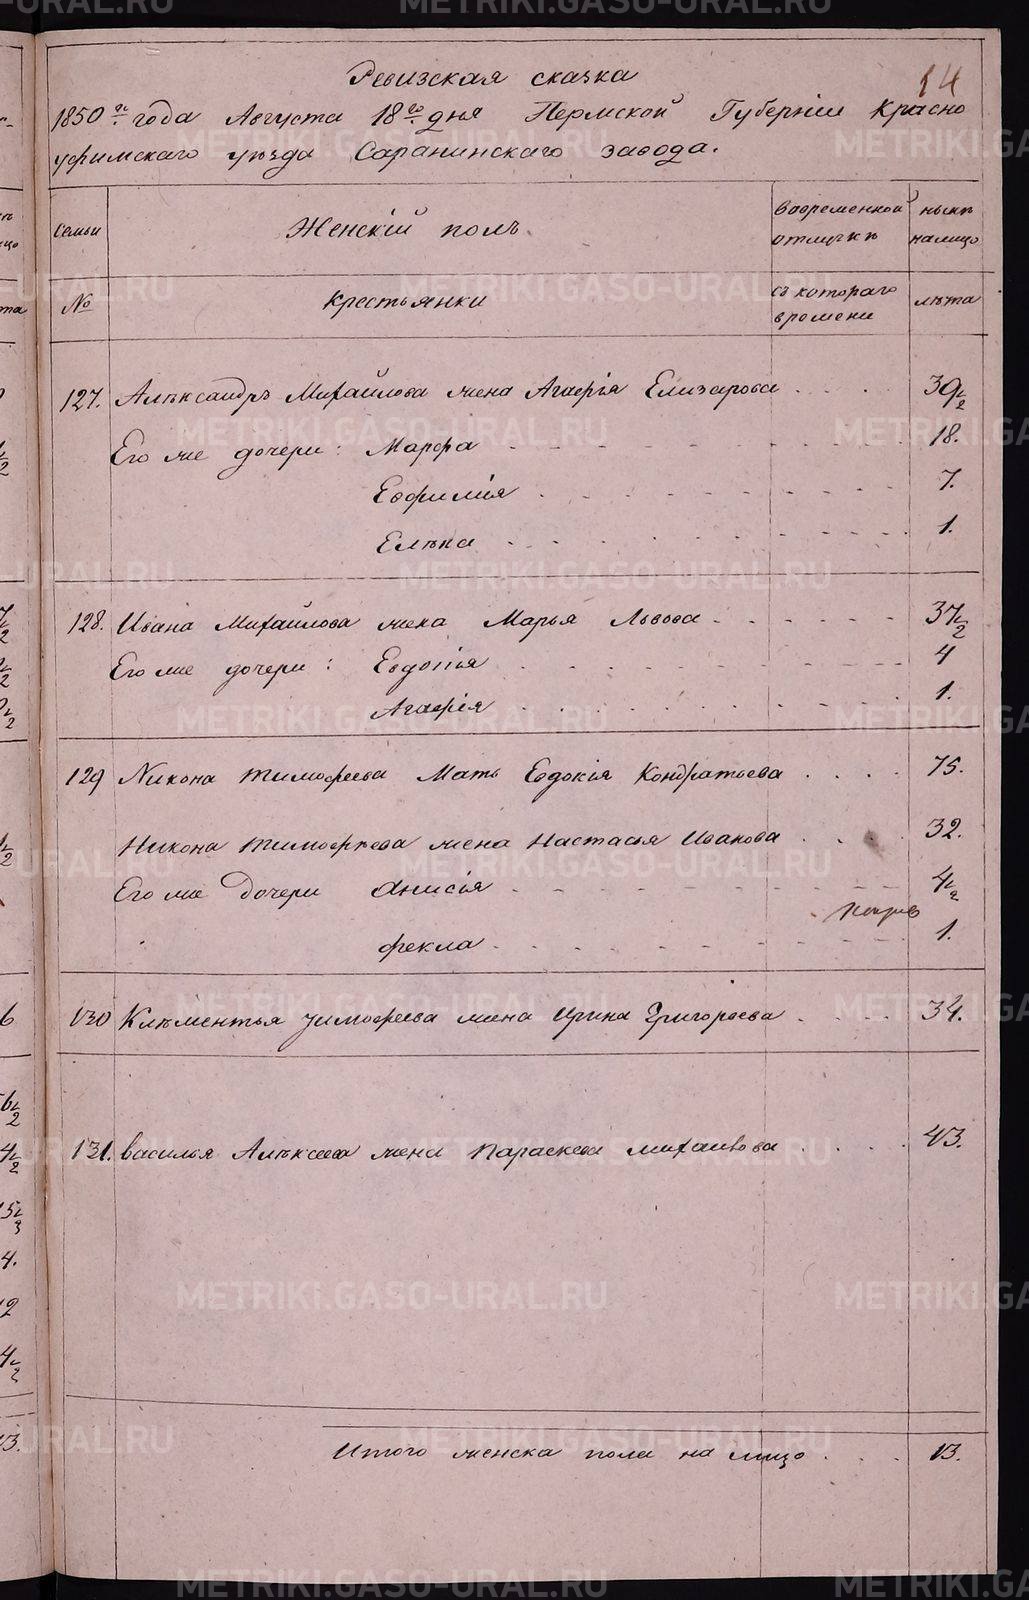 14
Ревизская сказка
1850го года Августа 18го дня Пермской Губернии Красно
уфимскаго уѣзда Саранинскаго завода.
Семьи
Женскій полъ
Вовременной отлучкѣ
нынѣ налицо
№
Крестьянки
съ котораго времени
лѣта
127. Алѣксандръ Михайлова жена Агафія Елизарова . . . . 39 1/2
Его же дочери: Марфа 18.
Евфимія 7.
Елѣна 1.
128. Ивана Михайлова жена Марья Львова 37 1/2
Его же дочери: Евдокія 4
Агафія 1.
129 Никона Тимофеева Мать Евдокія Кондратьева . . . . 75.
Никона Тимофѣева жена Настасья Иванова . . 32.
Его же Дочери Анисія 4 1/2
фекла 1.
130 Клѣментья Тимофеева жена Ирина Григорьева . . . . 34.
131. Василья Алѣксеева жена Параскева михайлова . . . . 43.
Итого женска пола на лицо . . . . 13.
METRIKI.GASO-URAL.RU